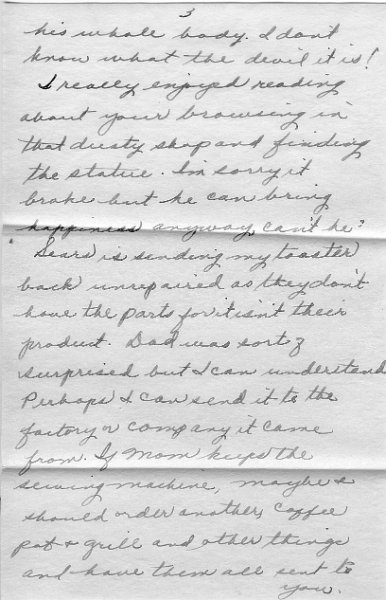 3
his whole body. I don't
know what the devil it is!
I really enjoyed reading
about your browsing in
that dusty shop and finding
the statue. I'm sorry it
broke but he can bring
happiness anyway, can't he?
Sears is sending my toaster
back unrepaired as they don't
have the parts for it isn't their
product. Dad was sort of
surprised but I can understand
Perhaps I can send it to the
factory or company it came
from. If Mom keeps the
sewing machine, maybe I
should order another coffee
pot & grill and other things
and have them all sent to
you.